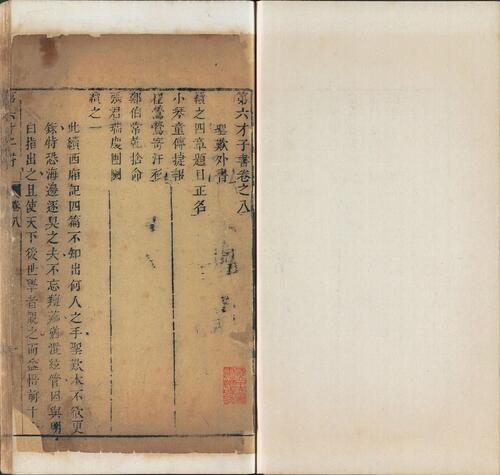 第六才子書卷之八
聖歎外書
續之四章題目正名
小琴童傳捷報
崔鶯鶯寄汗衫
鄭伯常乾捨命
張君瑞慶團圞
續之一
此續西廂記四篇不知出何人之手聖歎本不欲更
錄特恐海邊逐臭之夫不忘羶薌猶混絃管因與明
白指出之且使天下後世學者覩之而益悟前十
第六才子書
卷八